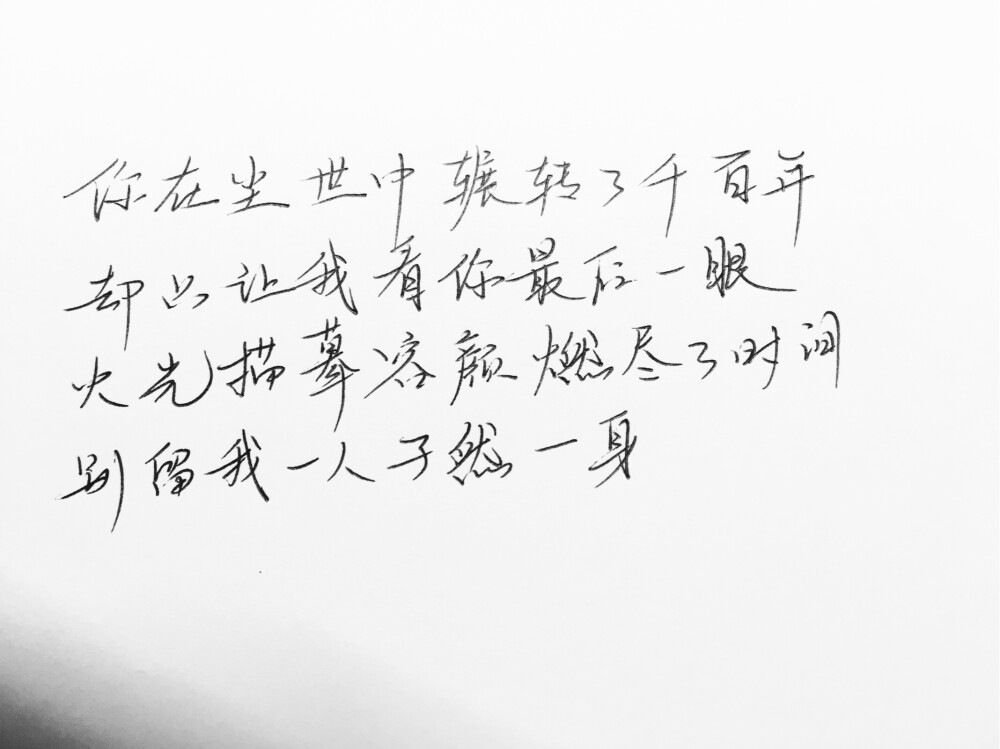 你在尘世中辗转了千百年
却只让我看你最后一眼
火光描摹容颜燃尽了时间
别留我一人孑然一身